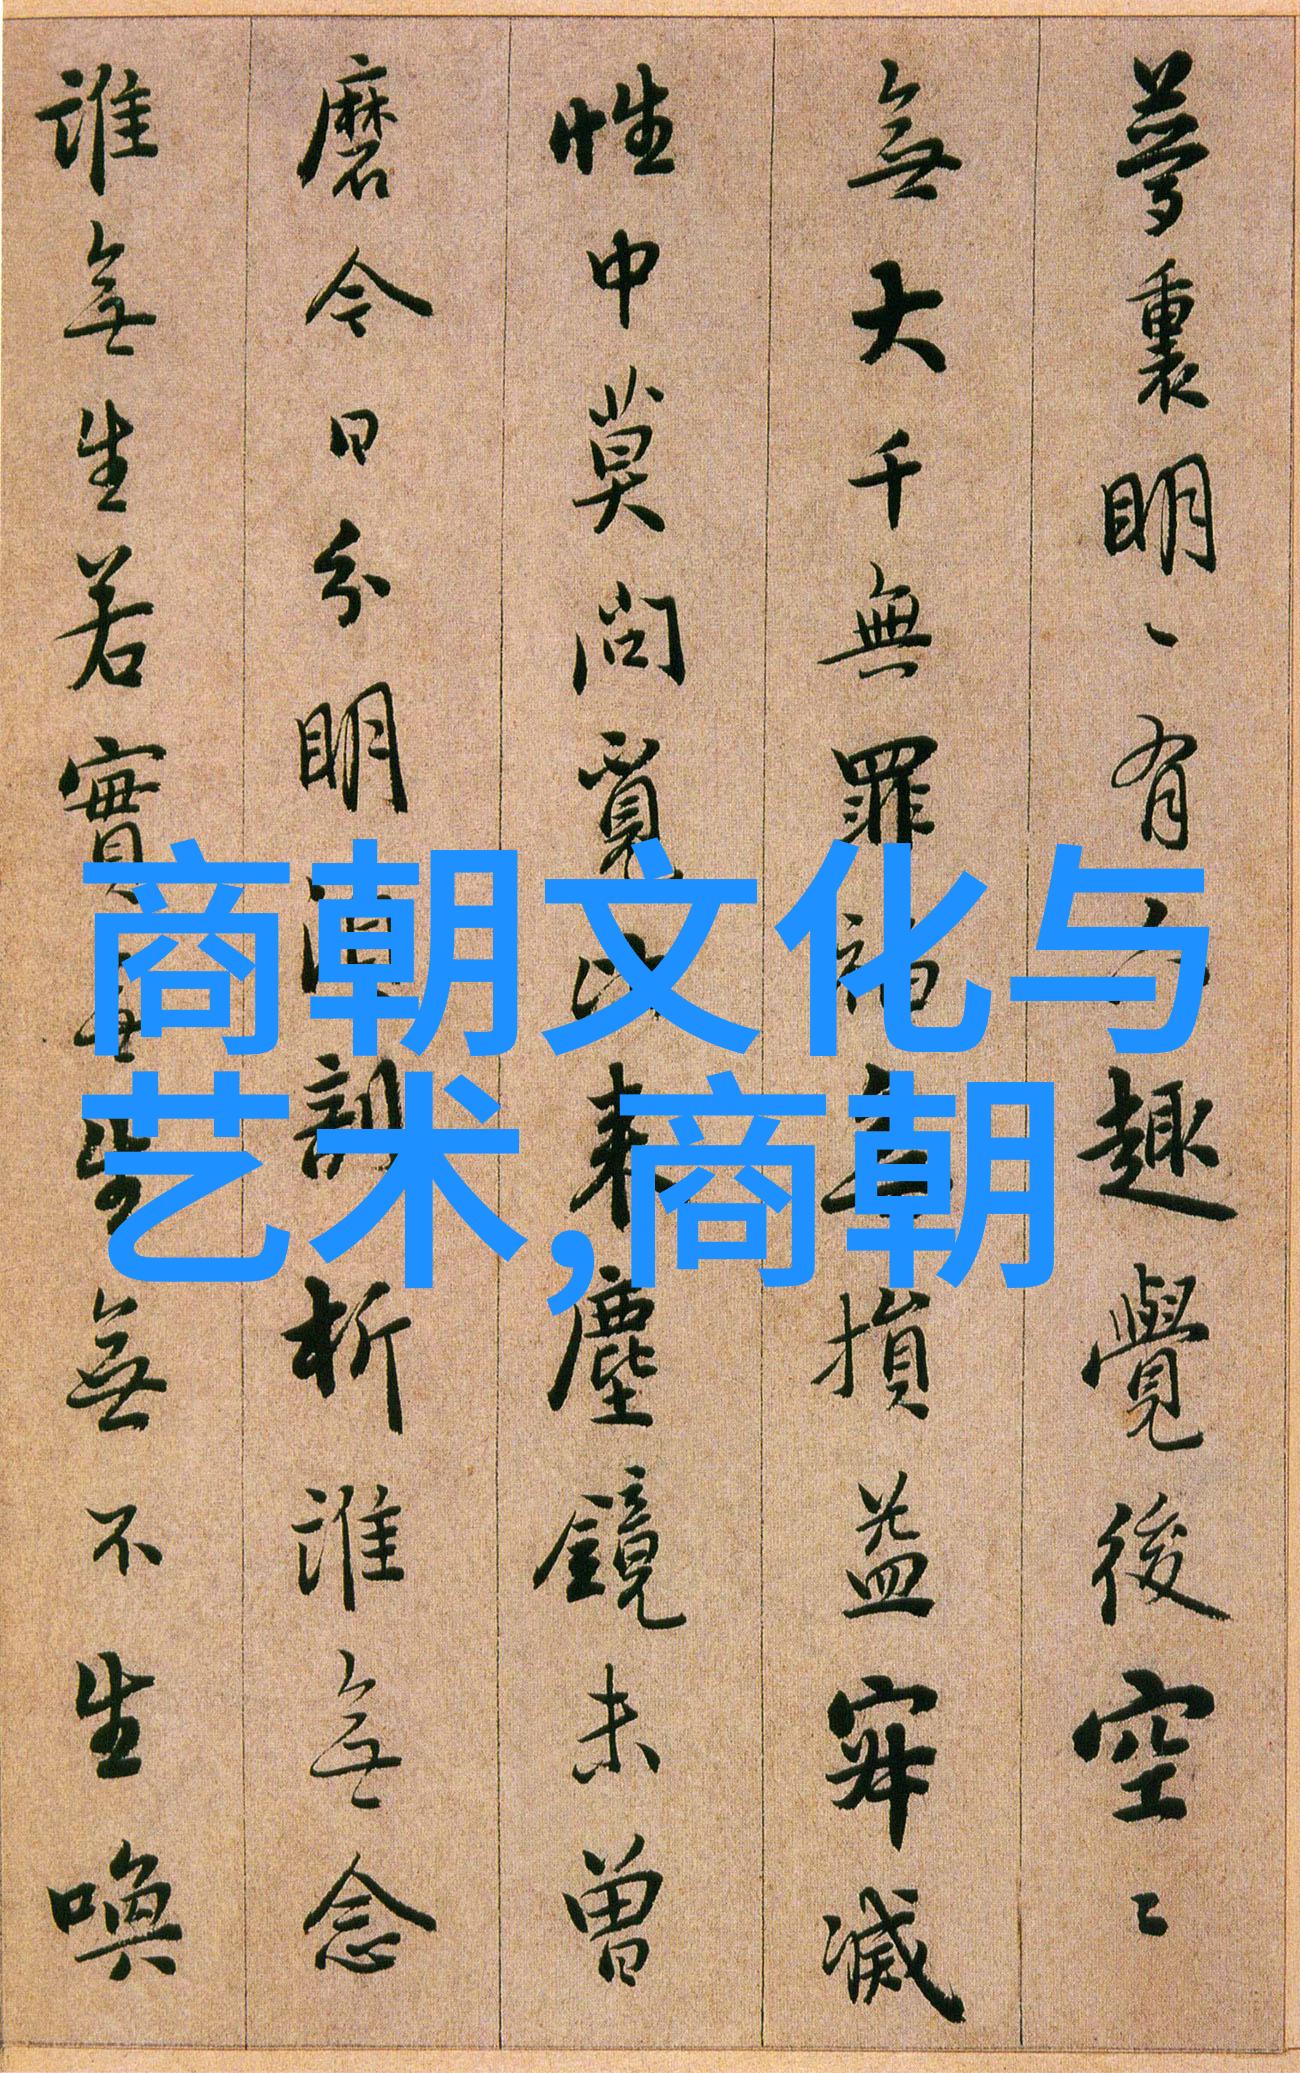 夢裏明丶有趣覺後空〻
無大千無罪福無損益寂滅
性中莫問覓来塵鏡未曾
磨今日分明析誰無念
誰無生若實無生無不生喚
商朝文化与
艺术,商朝